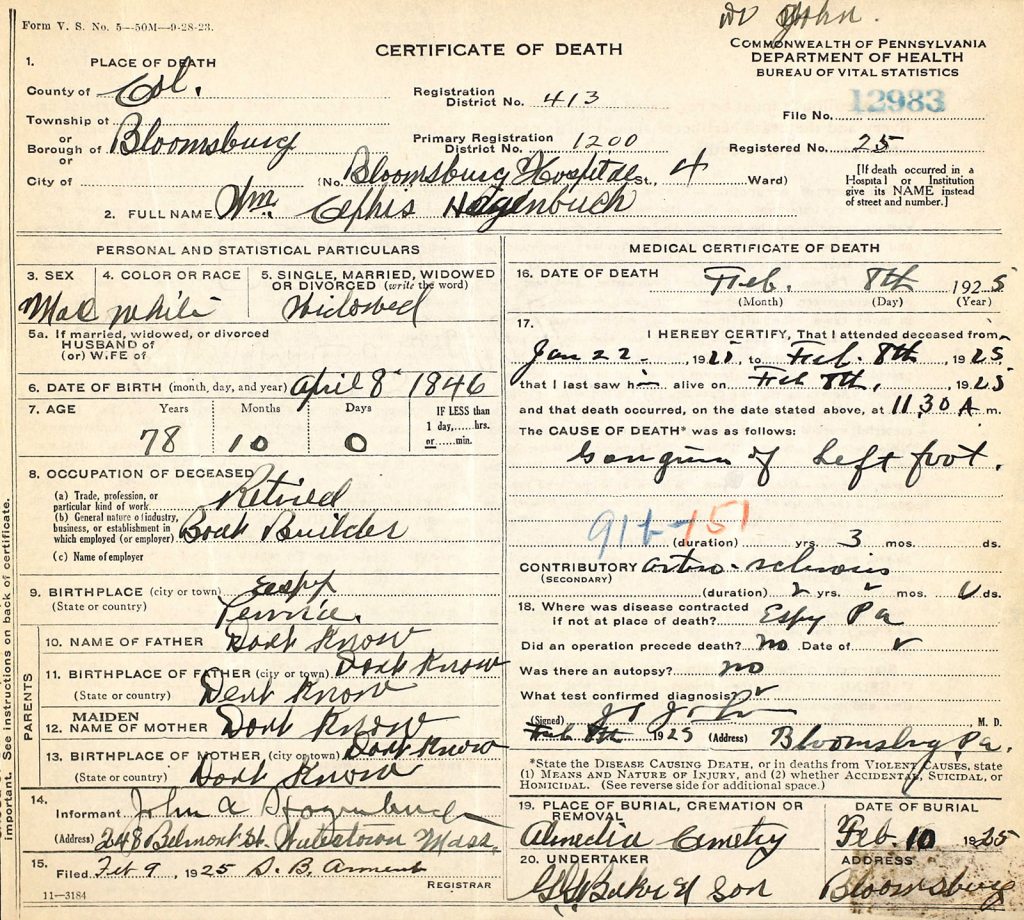 Form V. S. No. 5—50M—9-28-23.
Dr John.
CERTIFICATE OF DEATH
COMMONWEALTH OF PENNSYLVANIA
DEPARTMENT OF HEALTH
BUREAU OF VITAL STATISTICS
1. PLACE OF DEATH
County of Col.
Registration District No. 413
File No. 12983
Township of
or
Borough of Bloomsburg
or
Primary Registration District No. 1200
Registered No. 25
City of
(No. Bloomsburg Hospital St., 4 Ward)
[If death occurred in a Hospital or Institution give its NAME instead of street and number.]
2. FULL NAME Wm. Cephis Hagenbuch
PERSONAL AND STATISTICAL PARTICULARS
3. SEX
Male
4. COLOR OR RACE
white
5. SINGLE, MARRIED, WIDOWED OR DIVORCED (write the word)
Widowed
5a. If married, widowed, or divorced
HUSBAND of
(or) WIFE of
6. DATE OF BIRTH (month, day, and year) april 8" 1846
7. AGE Years Months Days
78 10 0
IF LESS than
1 day,......hrs.
or......min.
8. OCCUPATION OF DECEASED
(a) Trade, profession, or particular kind of work Retired
(b) General nature of industry, business, or establishment in which employed (or employer) Boat Builder
(c) Name of employer
9. BIRTHPLACE (city or town) Espy
(State or country) Penna.
PARENTS
10. NAME OF FATHER Dont Know
11. BIRTHPLACE OF FATHER (city or town) Dont Know
(State or country) Dont Know
12. MAIDEN NAME OF MOTHER Dont Know
13. BIRTHPLACE OF MOTHER (city or town) Dont Know
(State or country) Dont Know
14. Informant John A Hagenbuch
(Address) 248 Belmont St. Watertown Mass.
15. Filed Feb 9, 1925 S. B. Arment
REGISTRAR
11—3184
important. See instructions on back of certificate.
MEDICAL CERTIFICATE OF DEATH
16. DATE OF DEATH Feb. 8th 1925
(Month) (Day) (Year)
17. I HEREBY CERTIFY, That I attended deceased from
Jan 22, 1925, to Feb. 8th, 1925
that I last saw him alive on Feb 8th, 1925
and that death occurred, on the date stated above, at 11.30 A m.
The CAUSE OF DEATH* was as follows:
Gangrene of Left foot.
91b-151
(duration) yrs. 3 mos. ds.
CONTRIBUTORY
(SECONDARY)
(duration) 2 yrs. mos. ds.
18. Where was disease contracted if not at place of death? Espy Pa
Did an operation precede death? no Date of
Was there an autopsy? no
What test confirmed diagnosis?
(Signed) John M. D.
Feb 8th 1925 (Address) Bloomsbrg, Pa.
*State the DISEASE CAUSING DEATH, or in deaths from VIOLENT CAUSES, state
(1) MEANS AND NATURE OF INJURY, and (2) whether ACCIDENTAL, SUICIDAL, or
HOMICIDAL. (See reverse side for additional space.)
19. PLACE OF BURIAL, CREMATION OR REMOVAL
Almedia Cemetry
DATE OF BURIAL
Feb. 10 1925
20. UNDERTAKER
Baker & Son
ADDRESS
Bloomsburg